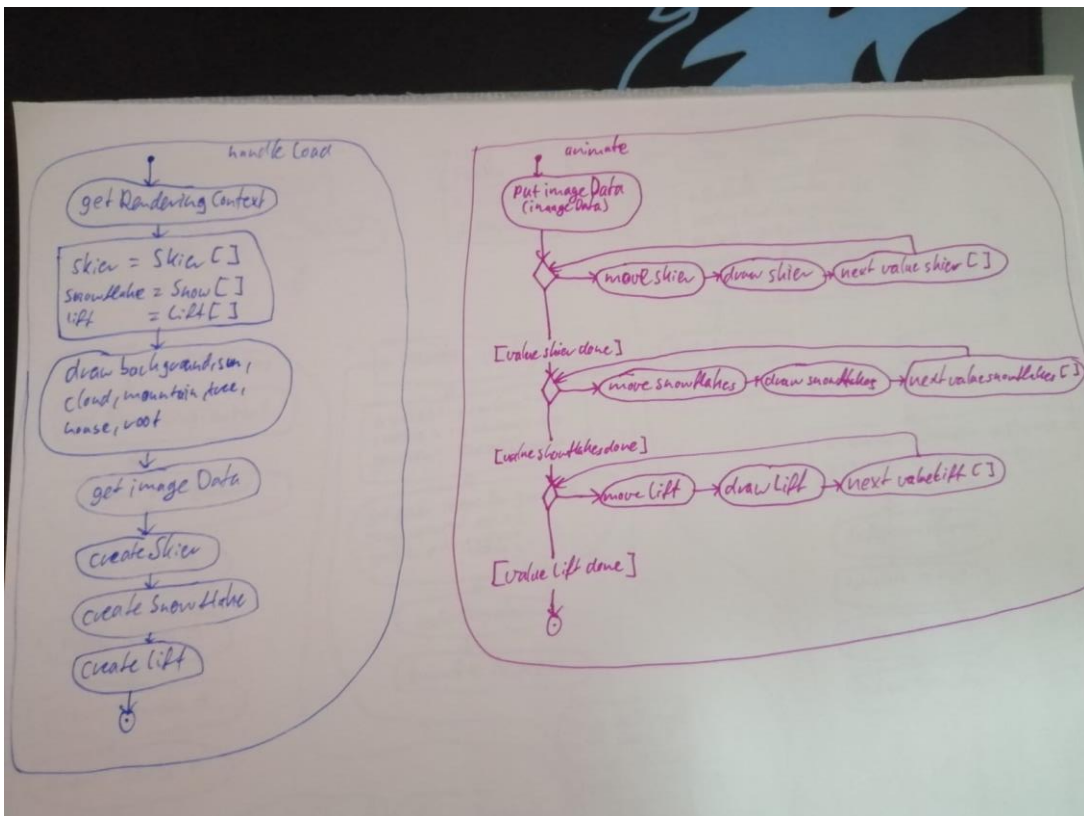 handleLoad
getRenderingContext
skier = Skier []
snowflake = Snow []
lift = Lift []
draw background, sun,
cloud, mountain, tree,
house, root
get image Data
createSkier
create Snowflake
create Lift
animate
put image Data
(imageData)
move skier
draw skier
next value skier []
[value skier done]
move snowflakes
draw snowflakes
next value snowflakes []
[value snowflakes done]
move Lift
draw Lift
next value Lift []
[value Lift done]